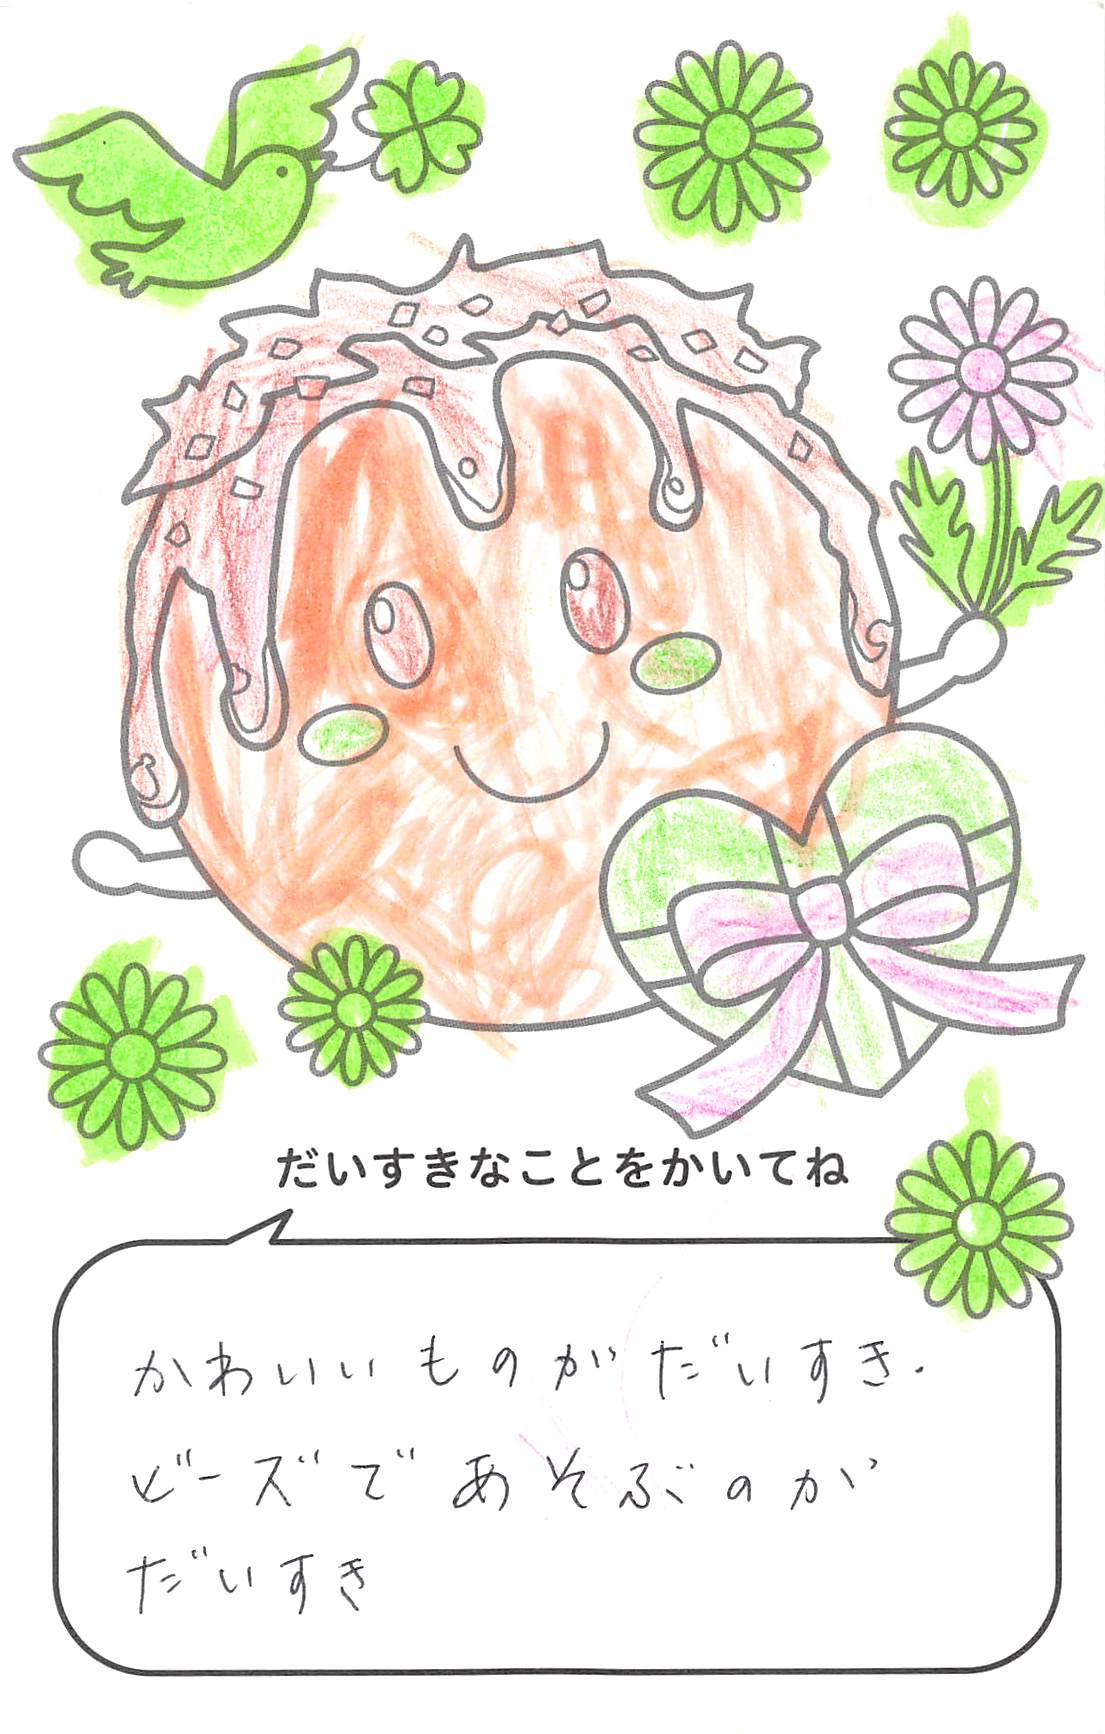 だいすきなことをかいてね
かわいいものがだいすき.
ビーズであそぶのが
だいすき